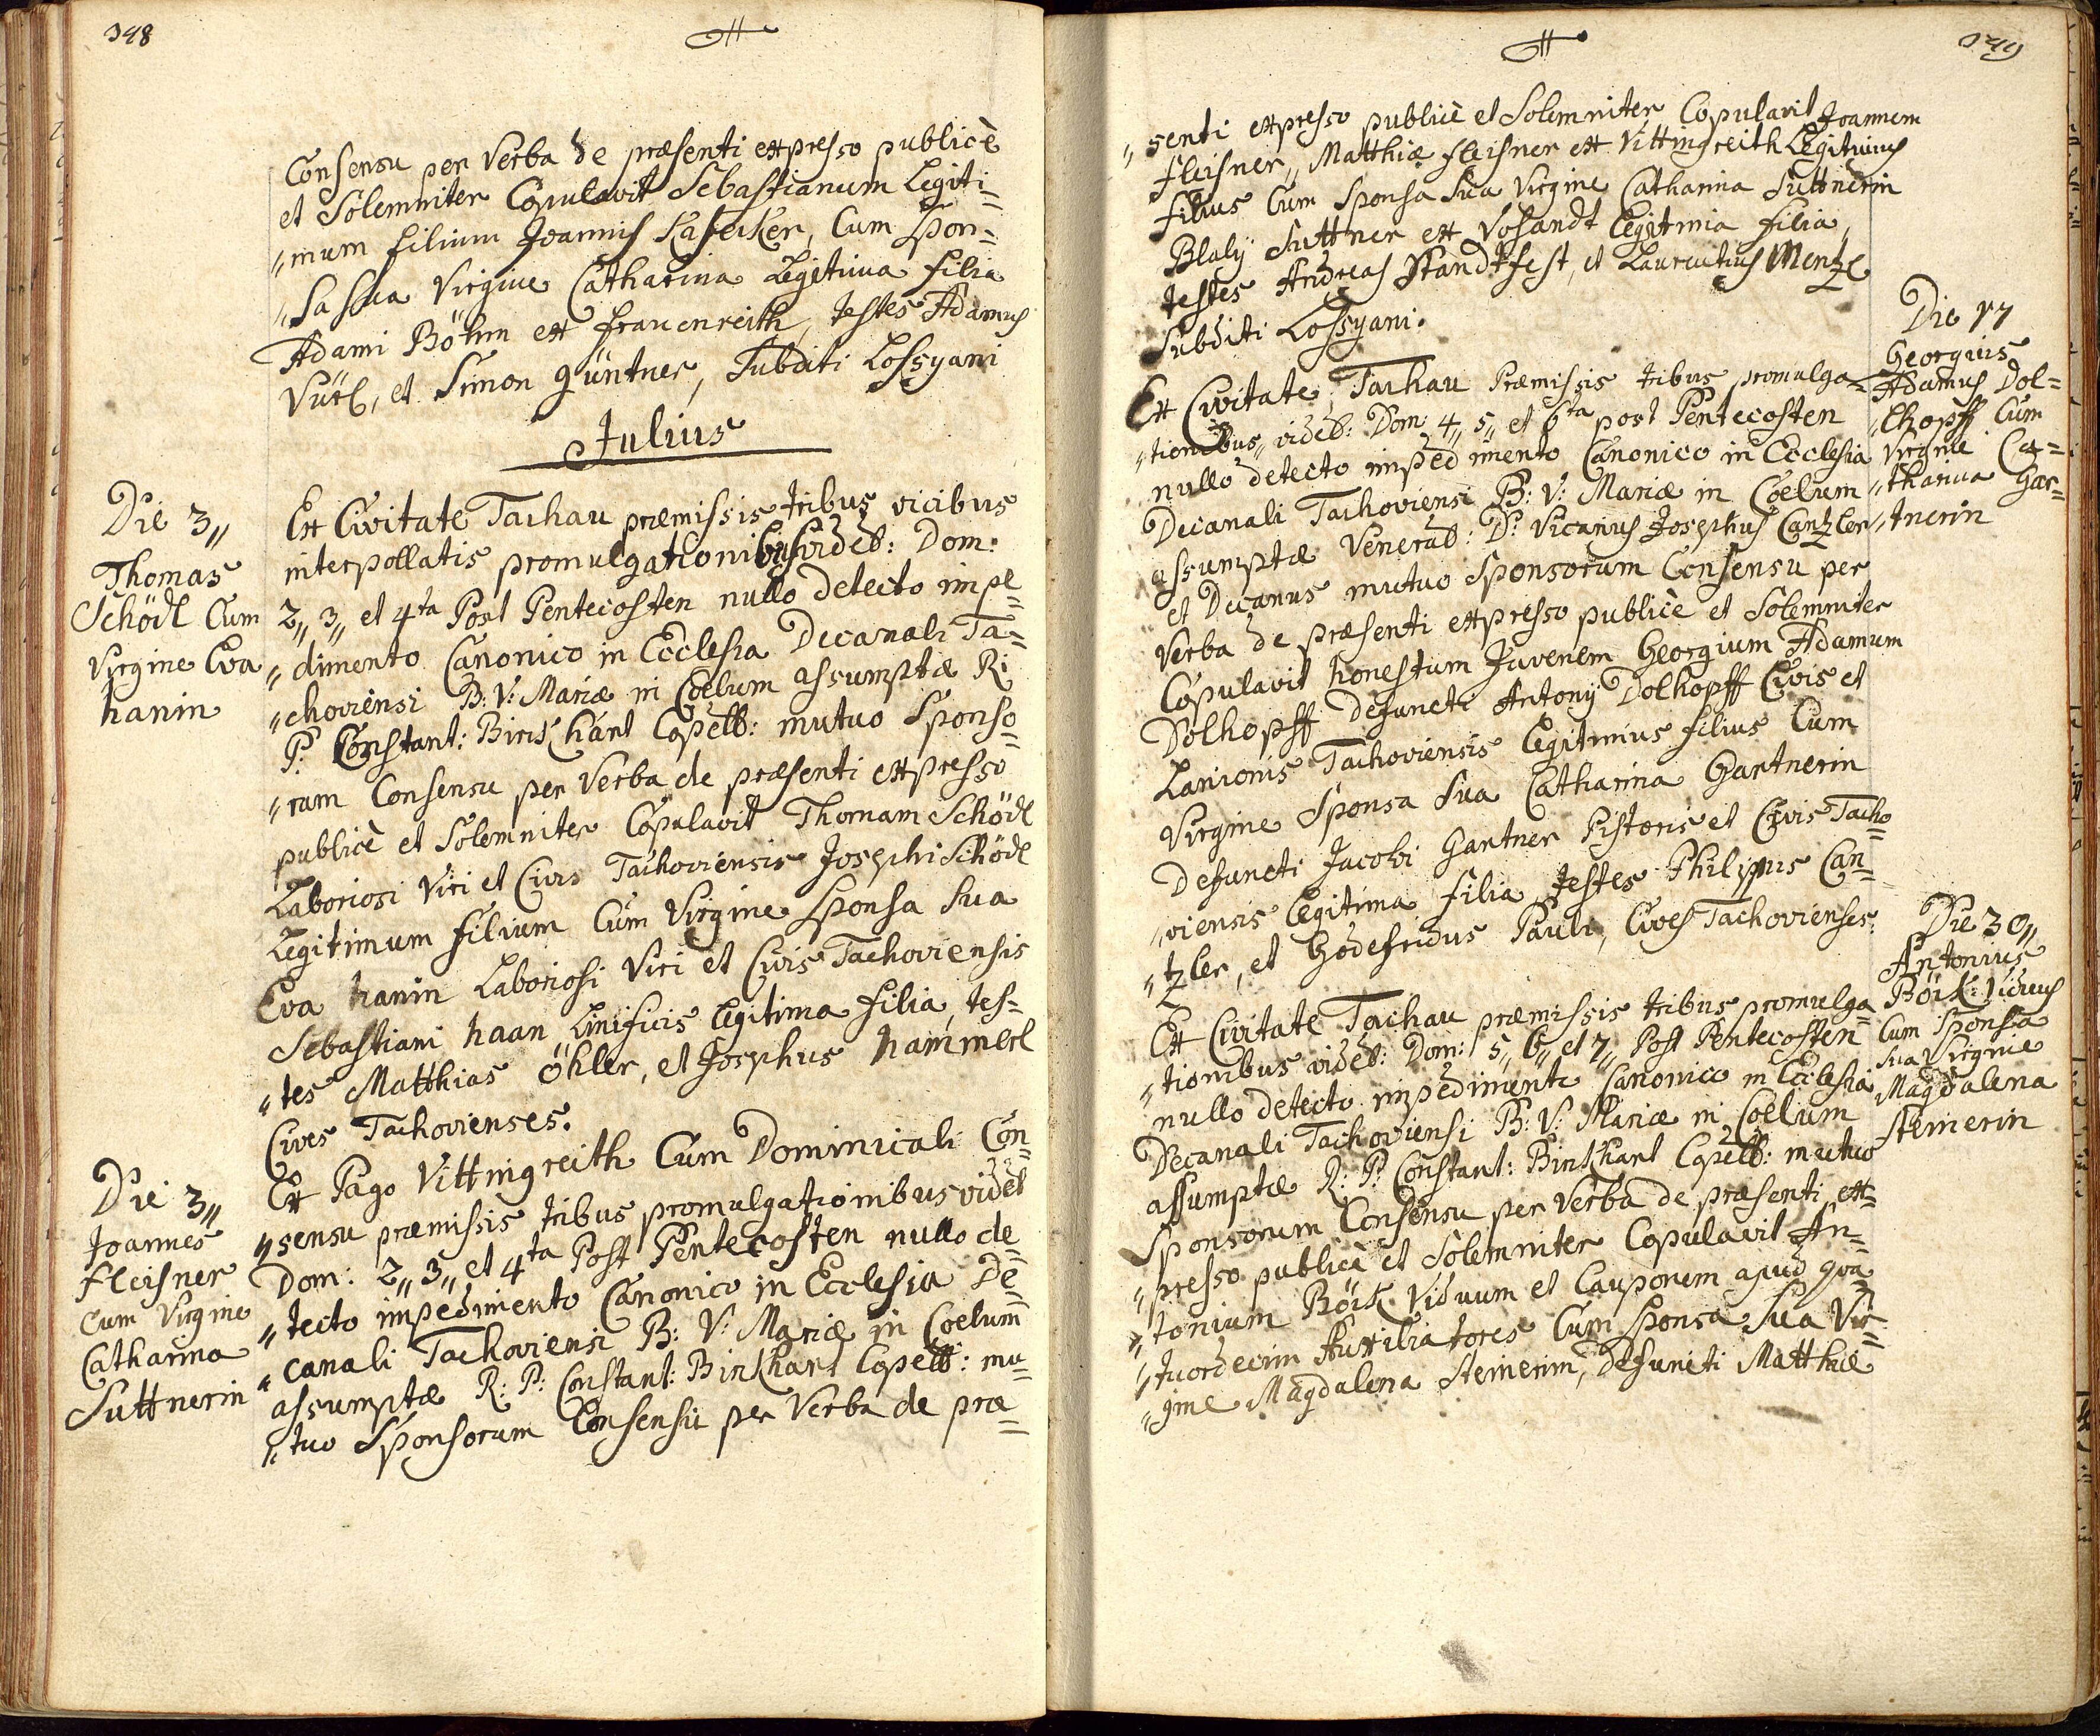 348
Consensu per Verba de præsenti expresso publicè
et Solemniter Copulavit Sebastianum Legiti=
"mum filium Joannis Kaseker, Cum Spon=
"sa sua Virgine Catharina Legitima filia
Adami Böhm ex frauenreith, testes Adamus
Vürl, et Simon güntner, Subditi Lossyani
Julius
Die 3"
Thomas
Schödl Cum
Virgine Eva
hanin
Ex Civitate Tachau præmissis tribus vicibus
interpollatis promulgationibus videb: Dom:
2" 3" et 4ta Post Pentecosten nullo detecto impe=
"dimento Canonico in Ecclesia Decanali Ta=
"choviensi B: V: Mariæ in Coelum assumptæ R:
P: Constant: Birckhart Copell: mutuo Sponso=
"rum Consensu per Verba de præsenti expresso
publicè et Solemniter Copulavit Thomam Schödl
Laboriosi Viri et Civis Tachoviensis Josephi Schödl
Legitimum filium Cum Virgine Sponsa Sua
Eva hanin Laboriosi Viri et Civis Tachoviensis
Sebastiani haan Linificis legitima filia, tes=
"tes Matthias öhler, et Josephus hammerl
Cives Tachovienses.
Die 3"
Joannes
fleisner
Cum Virgine
Catharina
Suttnerin
Ex Pago Vittingreith Cum Dominicali Con=
"sensu præmissis tribus promulgationibus videl
Dom: 2" 3" et 4ta Post Pentecosten nullo de=
"tecto impedimento Canonico in Ecclesia De=
"canali Tachoviensi B: V: Mariæ in Coelum
assumptæ R: P: Constant: Birkhart Copell: mu=
"tuo Sponsorum Consensu per Verba de præ=
349
"senti expresso publicè et Solemniter Copulavit Joannem
fleisner" Matthiæ fleisner ex Vittingreith Legitimus
filius Cum Sponsa Sua Virgine Catharina Suttnerin
Blasy Suttner ex Vosandt legitmia filia,
testes Andreas Standtfest, et Laurentius Mentzl
Subditi Lossyani.
Die 17
Georgius
Adamus Dol=
"lhopff Cum
Virgine Ca=
"tharina Gar=
"tnerin
Ex Civitate Tachau Præmissis tribus promulga=
"tionibus" videb: Dom: 4" 5" et 6ta post Pentecosten
nullo detecto impedimento Canonico in Ecclesia
Decanali Tachoviensi B: V: Mariæ in Coelum
assumptæ Venerab: D: Vicarius Josephus Cantzler
et Decanus mutuo Sponsorum Consensu per
Verba de præsenti expresso publicè et Solemniter
Copulavit honestum Juvenem Georgium Adamum
Dolhopff defuncti Antony Dolhopff Civis et
Lanionis Tachoviensis legitimus filius Cum
Virgine Sponsa Sua Catharina Gartnerin
Defuncti Jacobi Gartner Pistoris et Civis Tacho=
"viensis legitima filia, testes Philippus Can=
"tzler, et Godefridus Pauli, Cives Tachovienses.
Die 30"
Antonius
Böik Viduus
Cum Sponsa
Sua Virgine
Magdalena
Steinerin
Ex Civitate Tachau præmissis tribus promulga=
"tionibus videb: Dom: 5" 6" et 7" Post Pentecosten
nullo detecto impedimento Canonico in Ecclesia
Decanali Tachoviensi B: V: Mariæ in Coelum
assumptæ R: P: Constant: Birkhart Copell: mutuo
Sponsorum Consensu per Verba de præsenti ex=
"presso publicè et Solemniter Copulavit An=
"tonium Böik Viduum et Cauponem apud qua
"tuordecim Auxiliatores Cum Sponsa Sua Vir=
"gine Magdalena Steinerin, defuncti Matthiæ